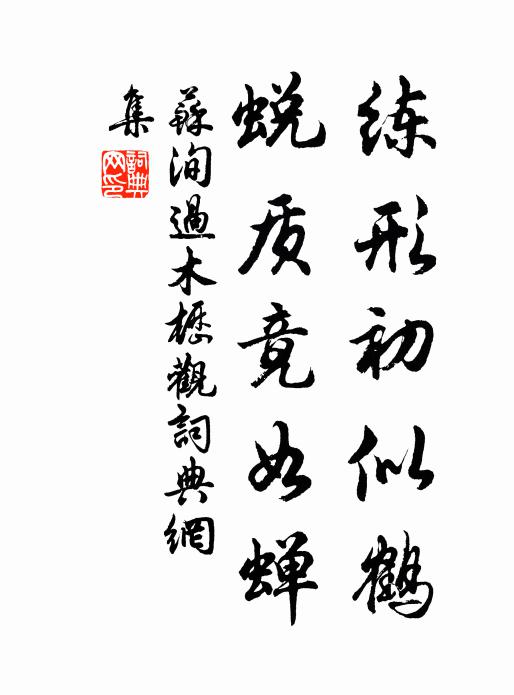 练形初似鹤
蜕质竟如蝉
蘇洵過木櫪觀詞典網
集
詞典网印